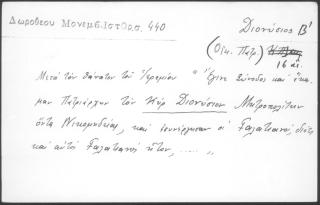 Δωροθέου Μονεμβ. Ιστορ. 440
Διονύσιος Β'
(Οικ. Πατρ.)
16 αι.
Μετά τον θάνατον του Ιερεμίου "Εγινε Σύνοδος και έκα-
μαν Πατριάρχην τον Κυρ Διονύσιον Μητροπολίτην
όντα Νικομηδείας, και εσυνήργησαν οι Γαλατιανοί, διότι
και αυτός Γαλατιανός ήτον, ..... "